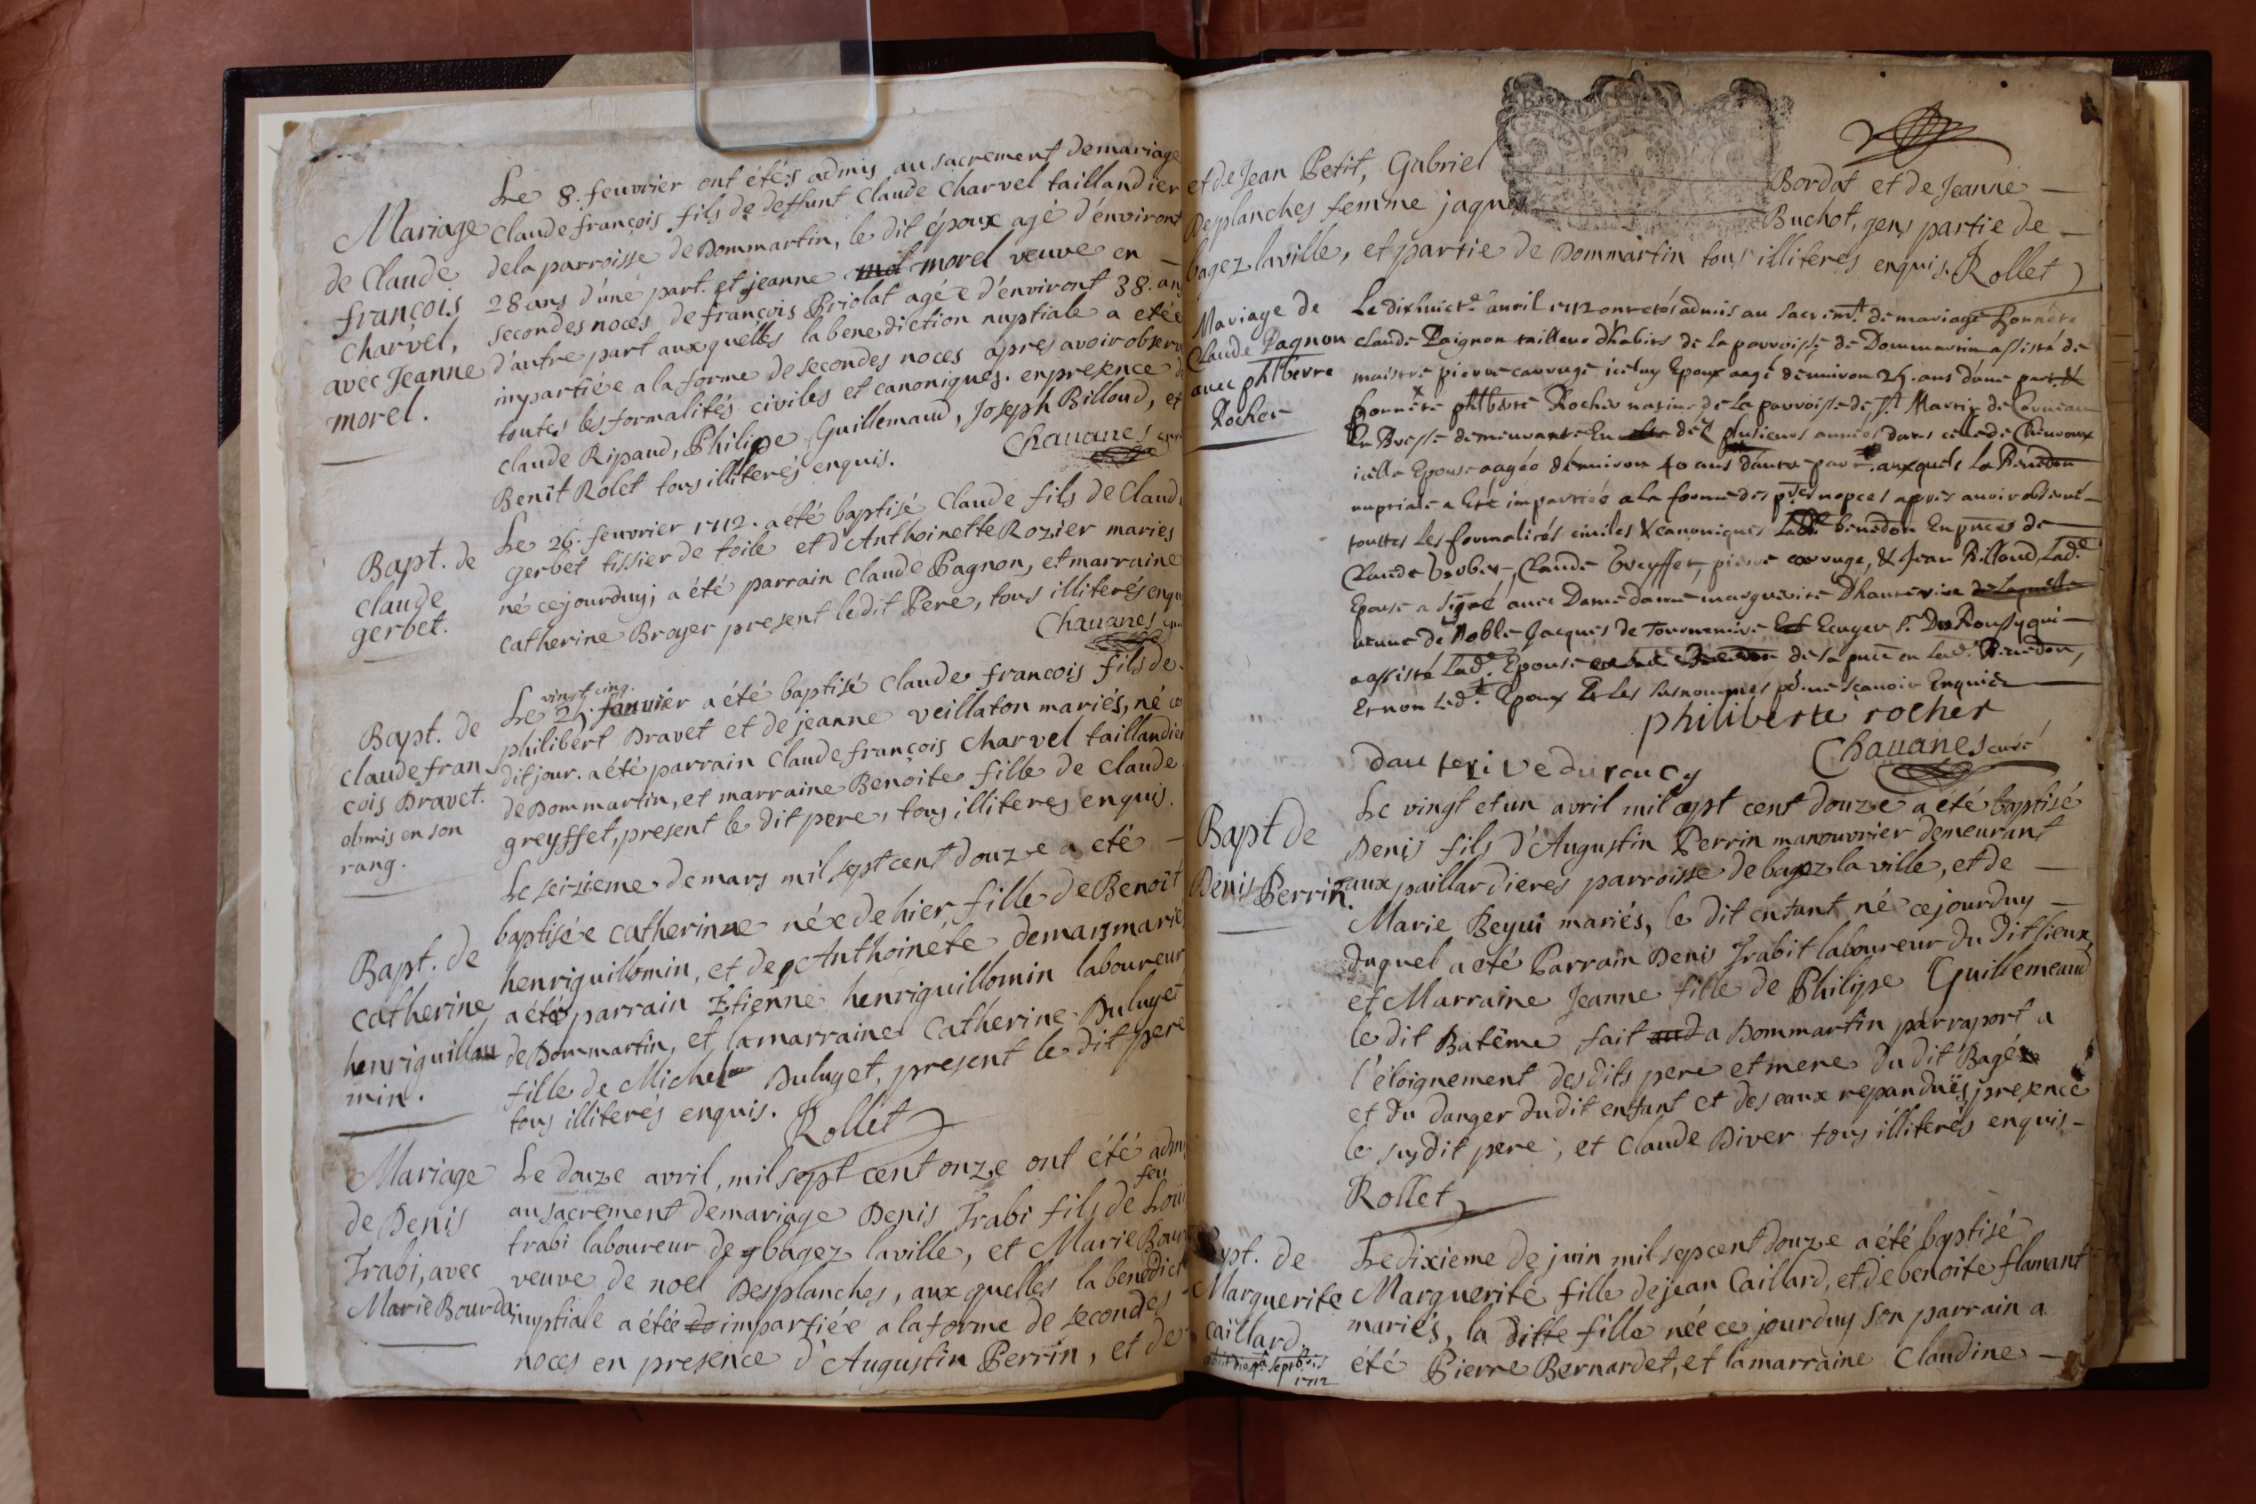 Le 8. feuvrier ont étés admis au sacrement de mariage
Mariage
de Claude
françois
Charvel,
avec Jeanne
morel.
Claude françois fils de deffunt Claude Charvel taillandier
de la parroisse de Dommartin, le dit époux agé d'environt
28 ans d'une part. et jeanne morel veuve en
secondes noces de françois Priolat agée d'environt 38. ans
d'autre part aux quélls la benediction nuptiale a etée
impartiée a la forme de secondes noces apres avoir observ
toutes les formalités civiles et canoniques. en presence d
claude Ripaud, Philipe Guillemaud, Joseph Billoud, et
Benit Rolet tous illiterés enquis.
Chauanes
Bapt. de
claude
gerbet.
Le 26. feuvrier 1712. a été baptisé Claude fils de Claud
gerbet tissier de toile et d'Anthoinette Rozier mariés
né cejourduy, a été parrain Claude Pagnon, et marraine
Catherine Broyer present le dit Pere, tous illiterés enqu
Chauanes
Bapt. de
claude fran
cois Dravet.
obmis en son
rang.
vingt cinq.
Le 25. Janvier a été baptisé claude francois fils de
philibert Dravet et de jeanne veillaton mariés, né
dit jour. a été parrain Claude françois Charvel taillandier
de Dommartin, et marraine Benoite fille de claude
greyffet, present le dit pere, tous illiteres enquis.
Bapt. de
Catherine
henriguillau
min.
Le seizieme de mars mil sept cent douze a eté
baptisée Catherinne née de hier fille de Benoit
henriguillomin, et de Anthoinéte demars mariés
a été parrain Etienne henriguillomin laboureur
de Dommartin, et la marraine Catherine Duluget
fille de Michel Duluget, present le dit pere
tous illiterés enquis.
Rollet
Mariage
de Denis
Trabi, avec
Marie Bourda
Le douze avril, mil sept cent onze ont été adm
feu
au sacrement de mariage Denis Trabi fils de Loui
trabi laboureur de bagez la ville, et Marie Bour
veuve de noel Desplanches, aux quelles la benedict
nuptiale a étée impartiée a la forme de secondes
noces en presence d'Augustin Perrin, et de
et de Jean Petit, Gabriel Bordat et de Jeanne
Deplanches femme jaques Buchot, gens partie de
bagez la ville, et partie de Dommartin tous illiteres enquis. Rollet
Mariage de
Claude Pagnon
avec phlberte
Rocher
Le dixhuict.e avril 1712 ont etés admis au sacremt. de mariage honnete
claude Paignon tailleur d'habits de la parroisse de Dommartin assisté de
maistre pierre carruge iceluy Epoux aagé denviron 25. ans dune part &
honnete phlberte Rocher natiue de la parroisse de St. Martin de
En Bresse demeurante En dez plusieurs années dans celle de Cheuroux
icelle Epouse aagée denviron 40 ans dautre part. auxquels la Benedon
nuptiale a Eté impartiée a la forme des pres nopces apres auoir obserué
touttes les formalités ciuiles & canoniques Lade. benedon En pnces de
Claude Verbet, Claude Greyffet, pierre carruge, & Jean Billoud, Lade.
Epouse a signé auec Dame dame marguerite Dhauterive
veuue de Noble Jacques de Tournemire Ecuyer Sr. Du Roussy qui
a assisté Lade. Epouse de sa pnce en Lade. Benedon,
Et non Led.t Epoux & Les susnommes pr ne sçauoir Enquis
philiberte rocher
dauterive du roucy
Chauanes curé
Bapt de
Denis Perrin.
Le vingt et un avril mil cept cent douze a été baptisé
Denis fils d'Augustin Perrin manouvrier demeurant
aux paillardieres parroisse de bagez la ville, et de
Marie Beyui mariés, le dit enfant né cejourduy
duquel a eté Parrain Denis Trabit laboureur du dit lieux,
et Marraine Jeanne fille de Philipe Guillemeaud
le dit Batême fait a Dommartin par raport a
l'éloignement desdits pere et mere du dit Bagé
et du danger du dit enfant et des eaux repanduës, presence
le susdit pere, et Claude Diver tous illiterés enquis
Rollet
Bapt. de
Marguerite
Caillard.
1712
Le dixieme de juin mil sepcent douze a été baptisé
Marguerite fille de jean Caillard, et de benoite flamant
mariés, la ditte fille née ce jourduy son parrain a
été Pierre Bernardet, et la marraine Claudine